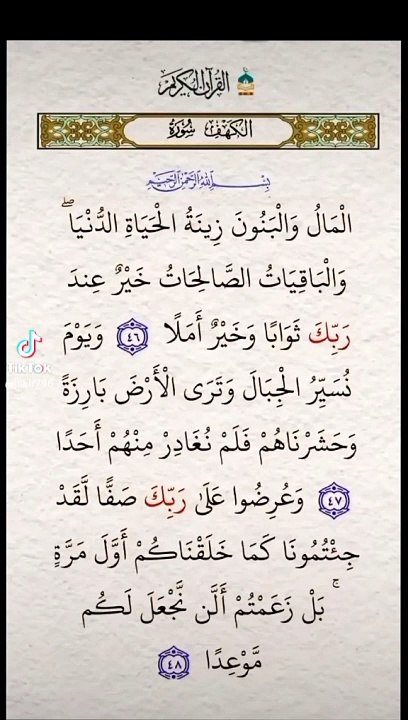 القرآن الكريم
الكهف سورة
بِسْمِ اللَّهِ الرَّحْمَٰنِ الرَّحِيمِ
الْمَالُ وَالْبَنُونَ زِينَةُ الْحَيَاةِ الدُّنْيَا ۖ
وَالْبَاقِيَاتُ الصَّالِحَاتُ خَيْرٌ عِندَ
رَبِّكَ ثَوَابًا وَخَيْرٌ أَمَلًا ٤٦ وَيَوْمَ
نُسَيِّرُ الْجِبَالَ وَتَرَى الْأَرْضَ بَارِزَةً
وَحَشَرْنَاهُمْ فَلَمْ نُغَادِرْ مِنْهُمْ أَحَدًا
٤٧ وَعُرِضُوا عَلَىٰ رَبِّكَ صَفًّا لَّقَدْ
جِئْتُمُونَا كَمَا خَلَقْنَاكُمْ أَوَّلَ مَرَّةٍ
ۚ بَلْ زَعَمْتُمْ أَلَّن نَّجْعَلَ لَكُم
مَّوْعِدًا ٤٨
TikTok